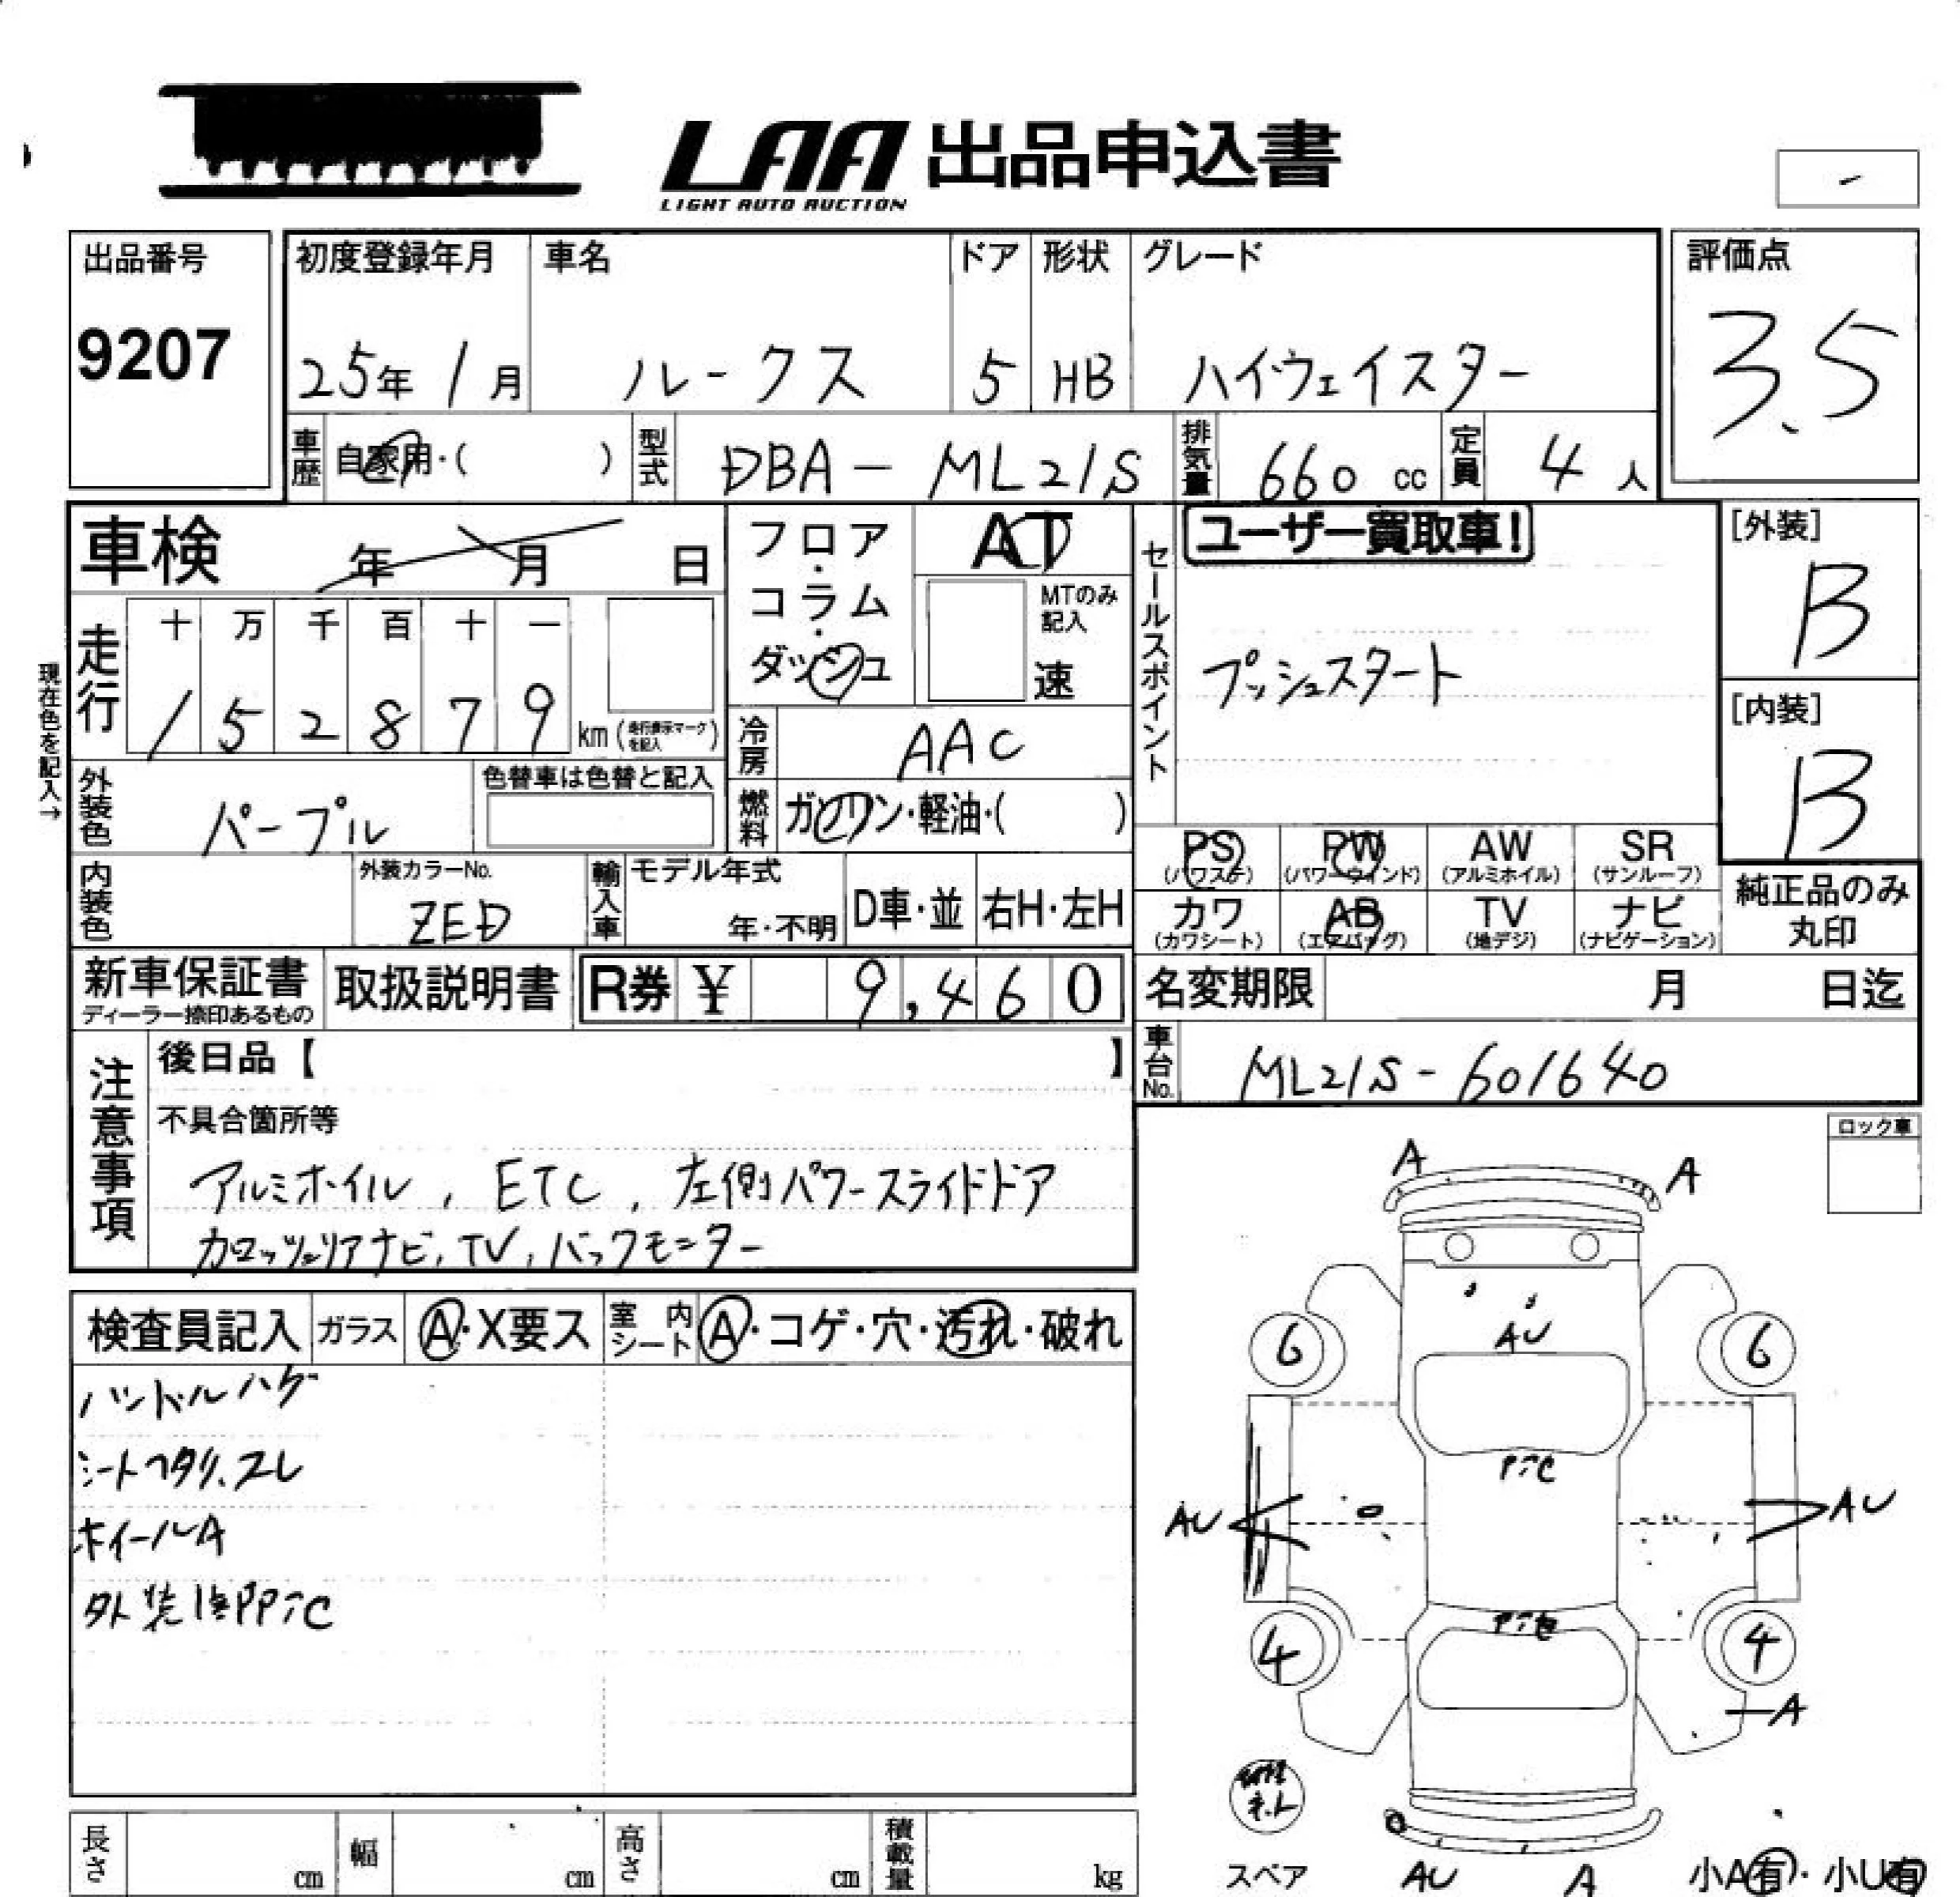 LAA 出品申込書
LIGHT AUTO AUCTION
-
出品番号
9207
初度登録年月
25年 1月
車名
ルークス
ドア
5
形状
HB
グレード
ハイウェイスター
評価点
3.5
車歴
自家用・( )
型式
DBA-ML21S
排気量
660 cc
定員
4人
車検 年 月 日
フロア・コラム・ダッシュ
AT
MTのみ記入
速
セールスポイント
ユーザー買取車!
プッシュスタート
[外装]
B
[内装]
B
現在色を記入→
走行
十 万 千 百 十 一
1 5 2 8 7 9 km (走行表示マークを記入)
冷房
AAC
燃料
ガソリン・軽油・( )
外装色
パープル
色替車は色替と記入
内装色
外装カラーNo.
ZED
輸入車
モデル年式
年・不明
D車・並
右H・左H
PS (パワステ)
PW (パワーウインド)
AW (アルミホイル)
SR (サンルーフ)
カワ (カワシート)
AB (エアバッグ)
TV (地デジ)
ナビ (ナビゲーション)
純正品のみ丸印
新車保証書
ディーラー捺印あるもの
取扱説明書
R券 ¥ 9,460
名変期限 月 日迄
車台No.
ML21S-601640
注意事項
後日品【 】
不具合箇所等
アルミホイル, ETC, 左側パワースライドドア
カロッツェリアナビ, TV, バックモニター
ロック車
検査員記入
ガラス
A・X要ス
室内シート
A・コゲ・穴・汚れ・破れ
ハンドルハゲ
シートヘタリ、スレ
ホイールA
A
A
AU
6
6
AU
AU
4
4
A
スペア
AU
A
小A有・小U有
長さ cm
幅 cm
高さ cm
積載量 kg